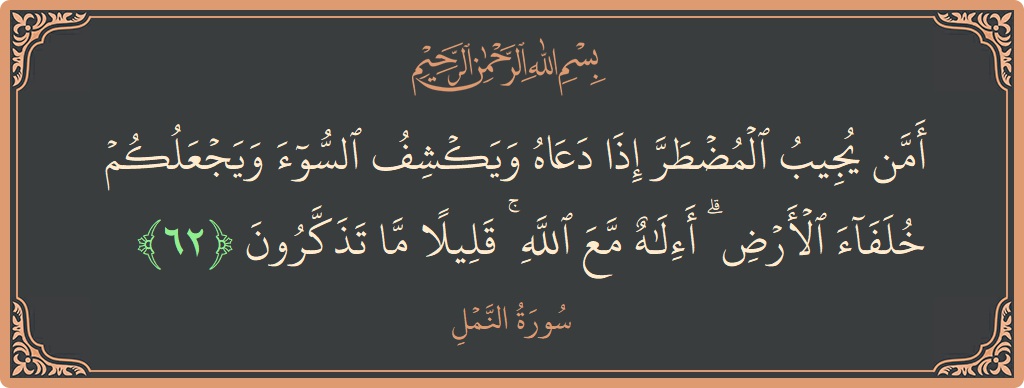 بِسْمِ اللَّهِ الرَّحْمَٰنِ الرَّحِيمِ
أَمَّن يُجِيبُ ٱلْمُضْطَرَّ إِذَا دَعَاهُ وَيَكْشِفُ ٱلسُّوٓءَ وَيَجْعَلُكُمْ
خُلَفَآءَ ٱلْأَرْضِ ۗ أَءِلَٰهٌ مَّعَ ٱللَّهِ ۚ قَلِيلًا مَّا تَذَكَّرُونَ ﴿٦٢﴾
سُورَةُ النَّمْلِ